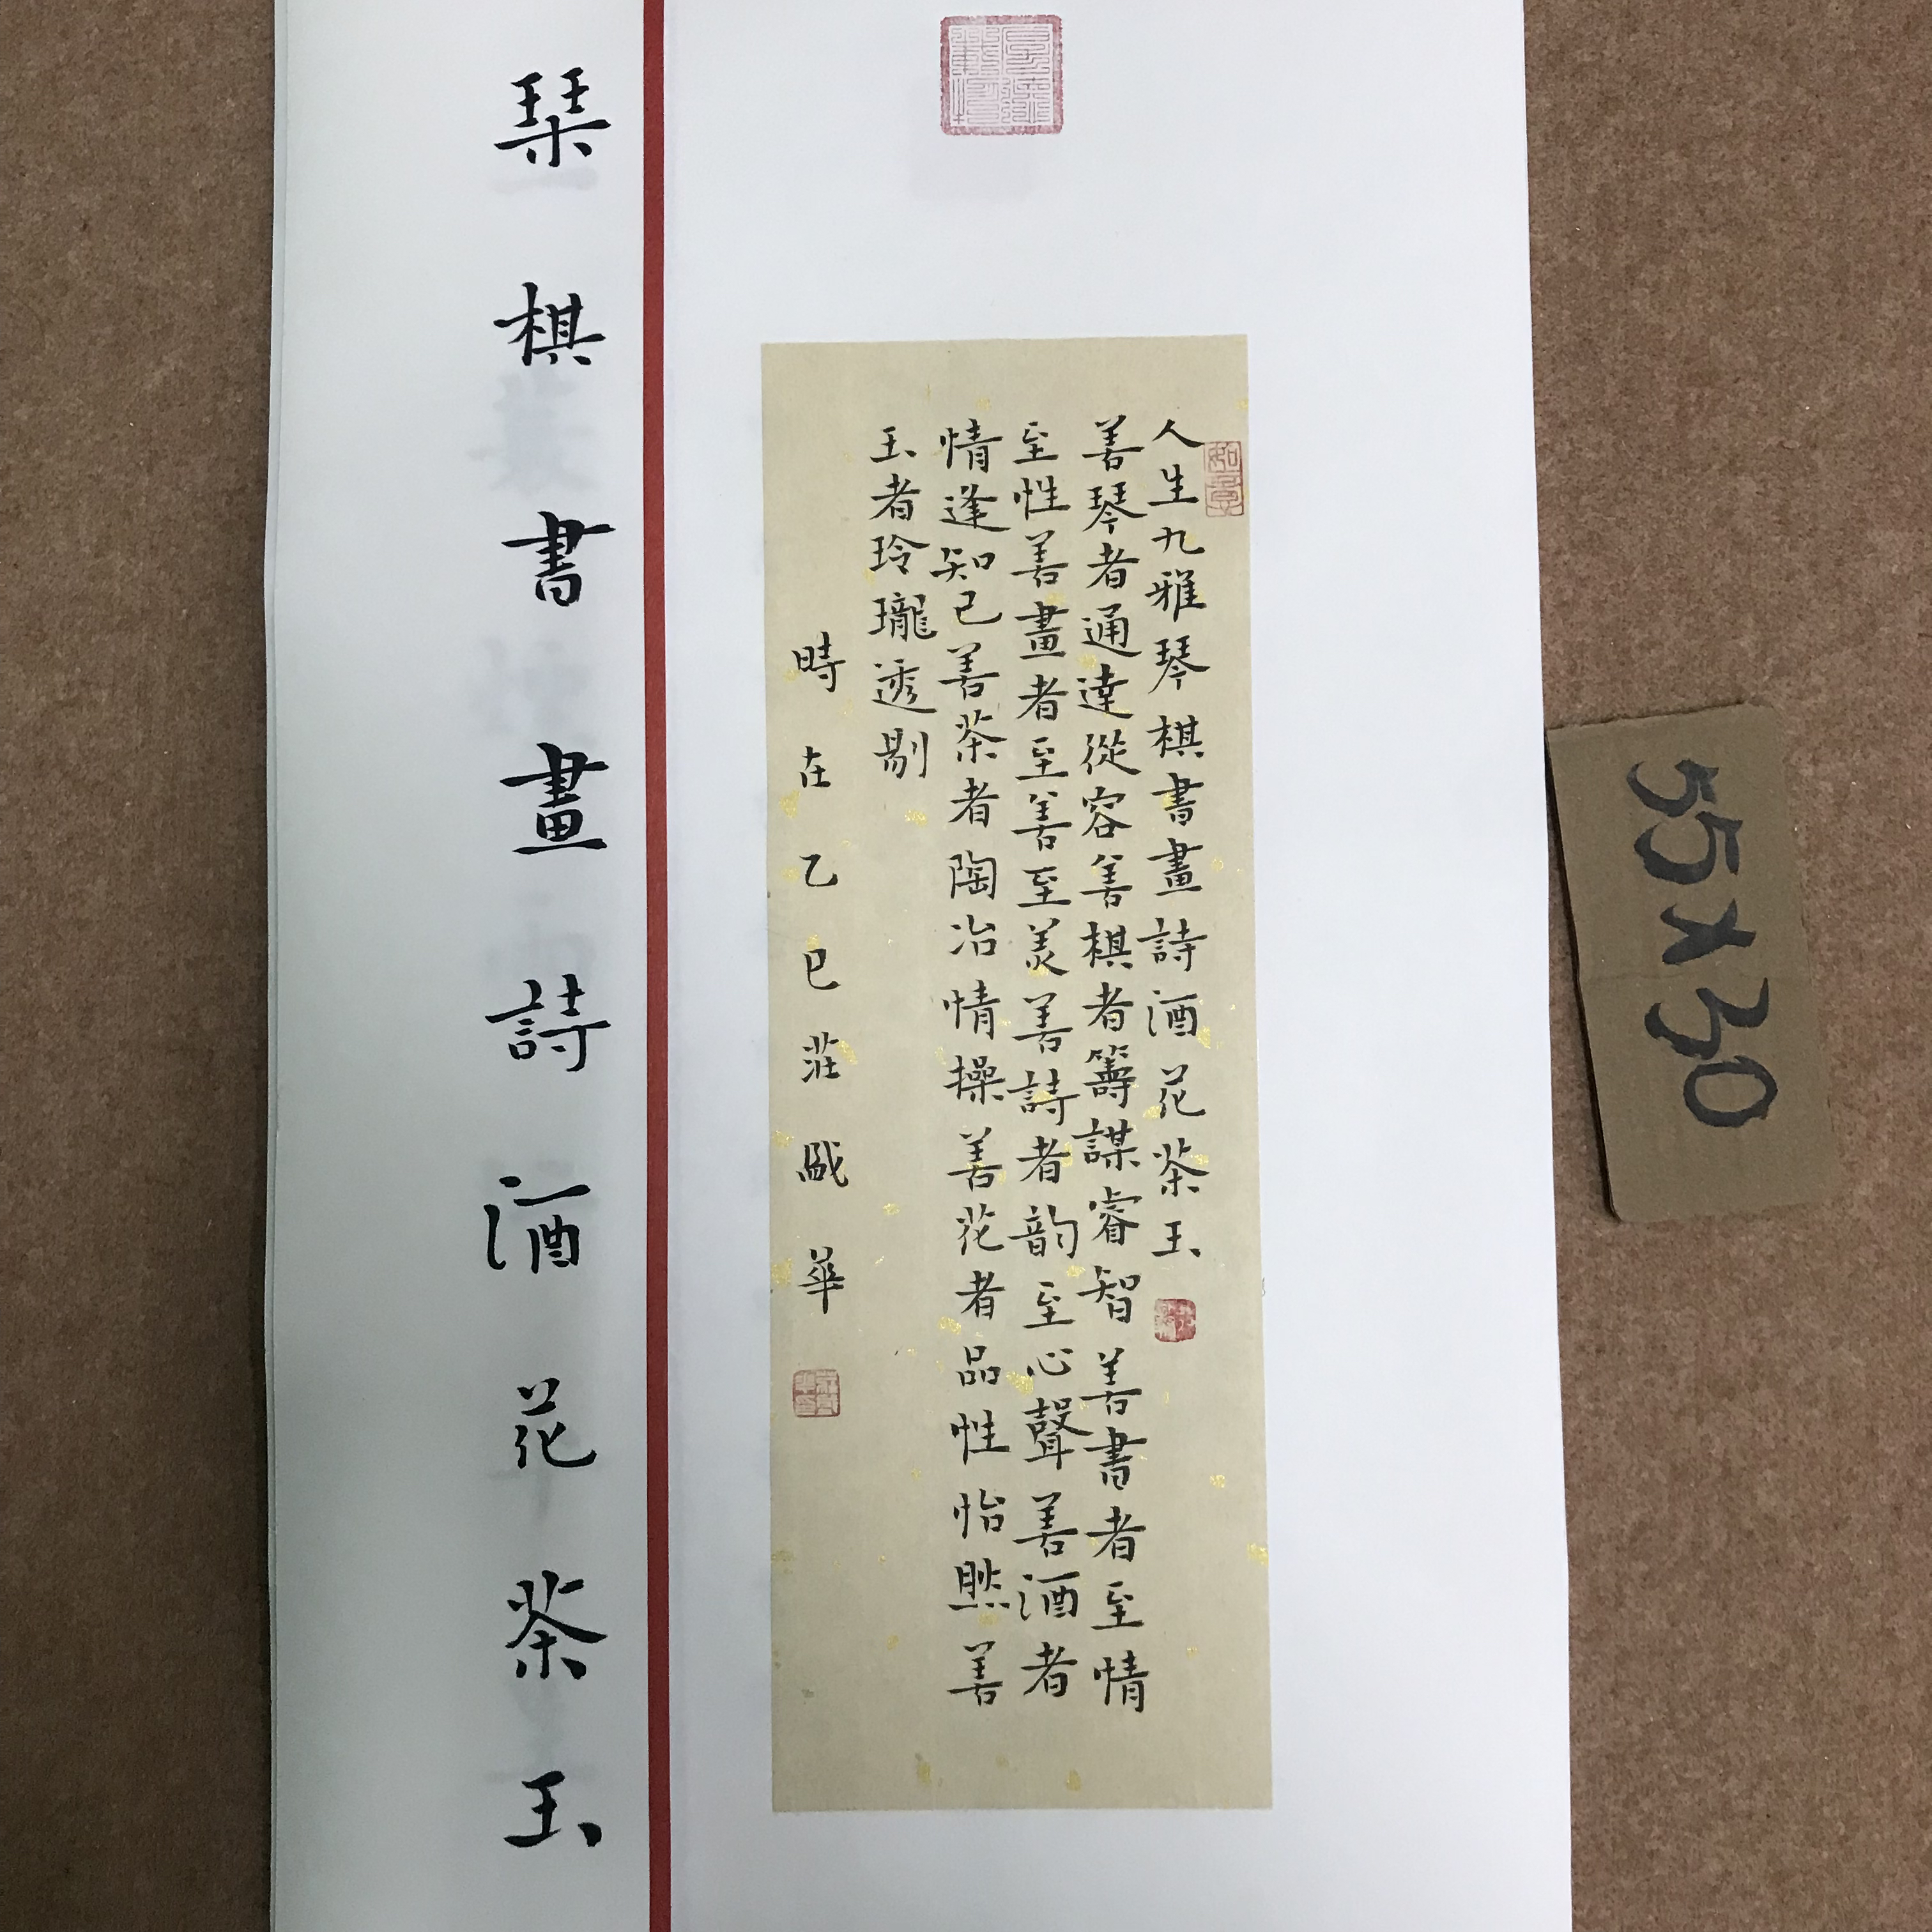 人生九雅琴棋書畫詩酒花茶玉
善琴者通達從容善棋者籌謀睿智善書者至情
至性善畫者至善至美善詩者韵至心聲善酒者
情逢知己善茶者陶冶情操善花者品性怡然善
玉者玲瓏透剔
時在乙巳莊盛華
琹棋書畫詩酒花茶玉
如意
55×30